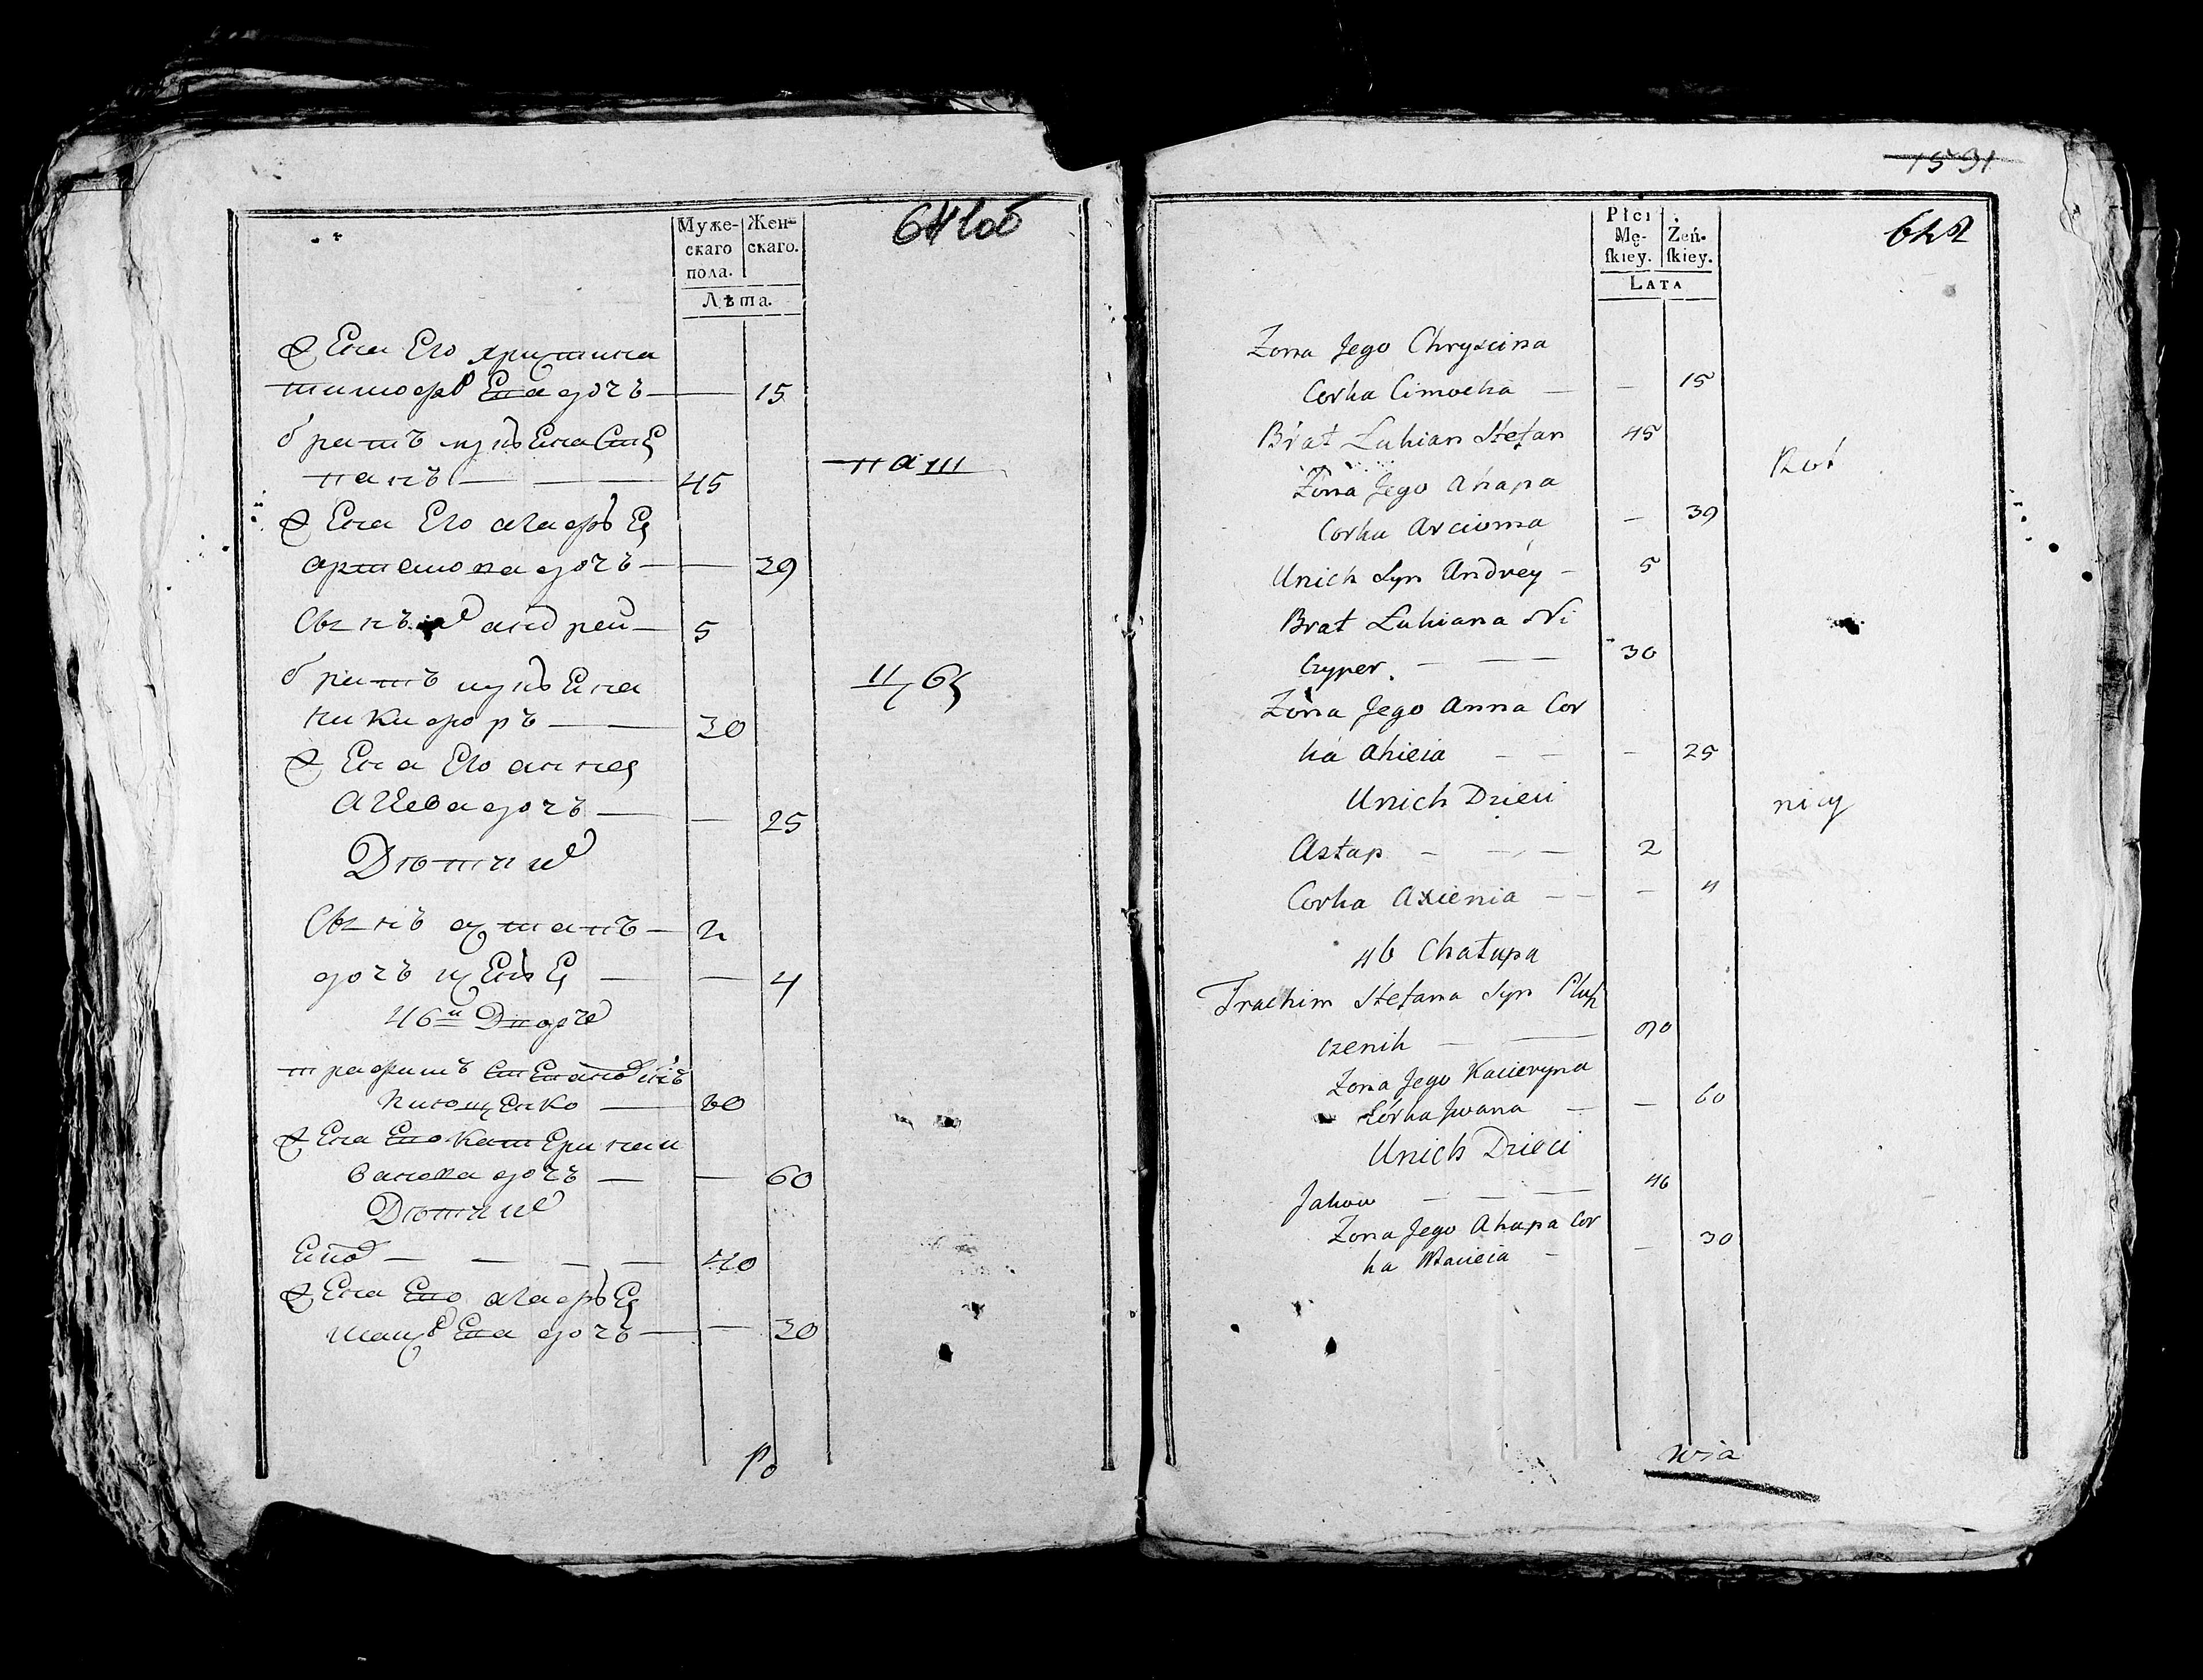 641 об
Муже-
скаго
пола.
Жен-
скаго.
Лѣта.
Жена Его христина
тимофѣева дочь — — 15
братъ лукьена Сте
панъ — — — 45
Жена Его агафья
артемова дочь — — 39
Сынъ андрей — 5
братъ лукьена
никифоръ — — 30
Жена Его анна
агеева дочь — — 25
Дѣти ихъ
Сынъ астапъ — 2
дочь — — 4
46й Дворъ
трафимъ Степановъ сынъ
— 60
Жена Его Катерина и
ванова дочь — — 60
Дѣти ихъ
— — — — 40
Жена Его агафья
дочь — — 30
паш
цы
Po
1591
642
Płci
Mę-
ſkiey.
Żeń-
ſkiey.
LATA
Zona Jego Chryscina
Corka Cimocha — — 15
Brat Łukian Stefan 45
Zona Jego Ahapa
Corka Arcioma — 39
Unich Syn Andrey — 5
Brat Łukiana Ni
czyper. — — 30
Zona Jego Anna Cor
ka Ahieia — — — 25
Unich Dzieci
Astap — — — 2
Corka Axienia — — — 4
46 Chałupa
Trachim Stefana Syn
czenik — —
Zona Jego Kacieryna
Córka Jwana — — 60
Unich Dzieci
Jakow — — — 40
Zona Jego Ahapa Cor
ka Macieia — — 30
Rol
nicy
wia